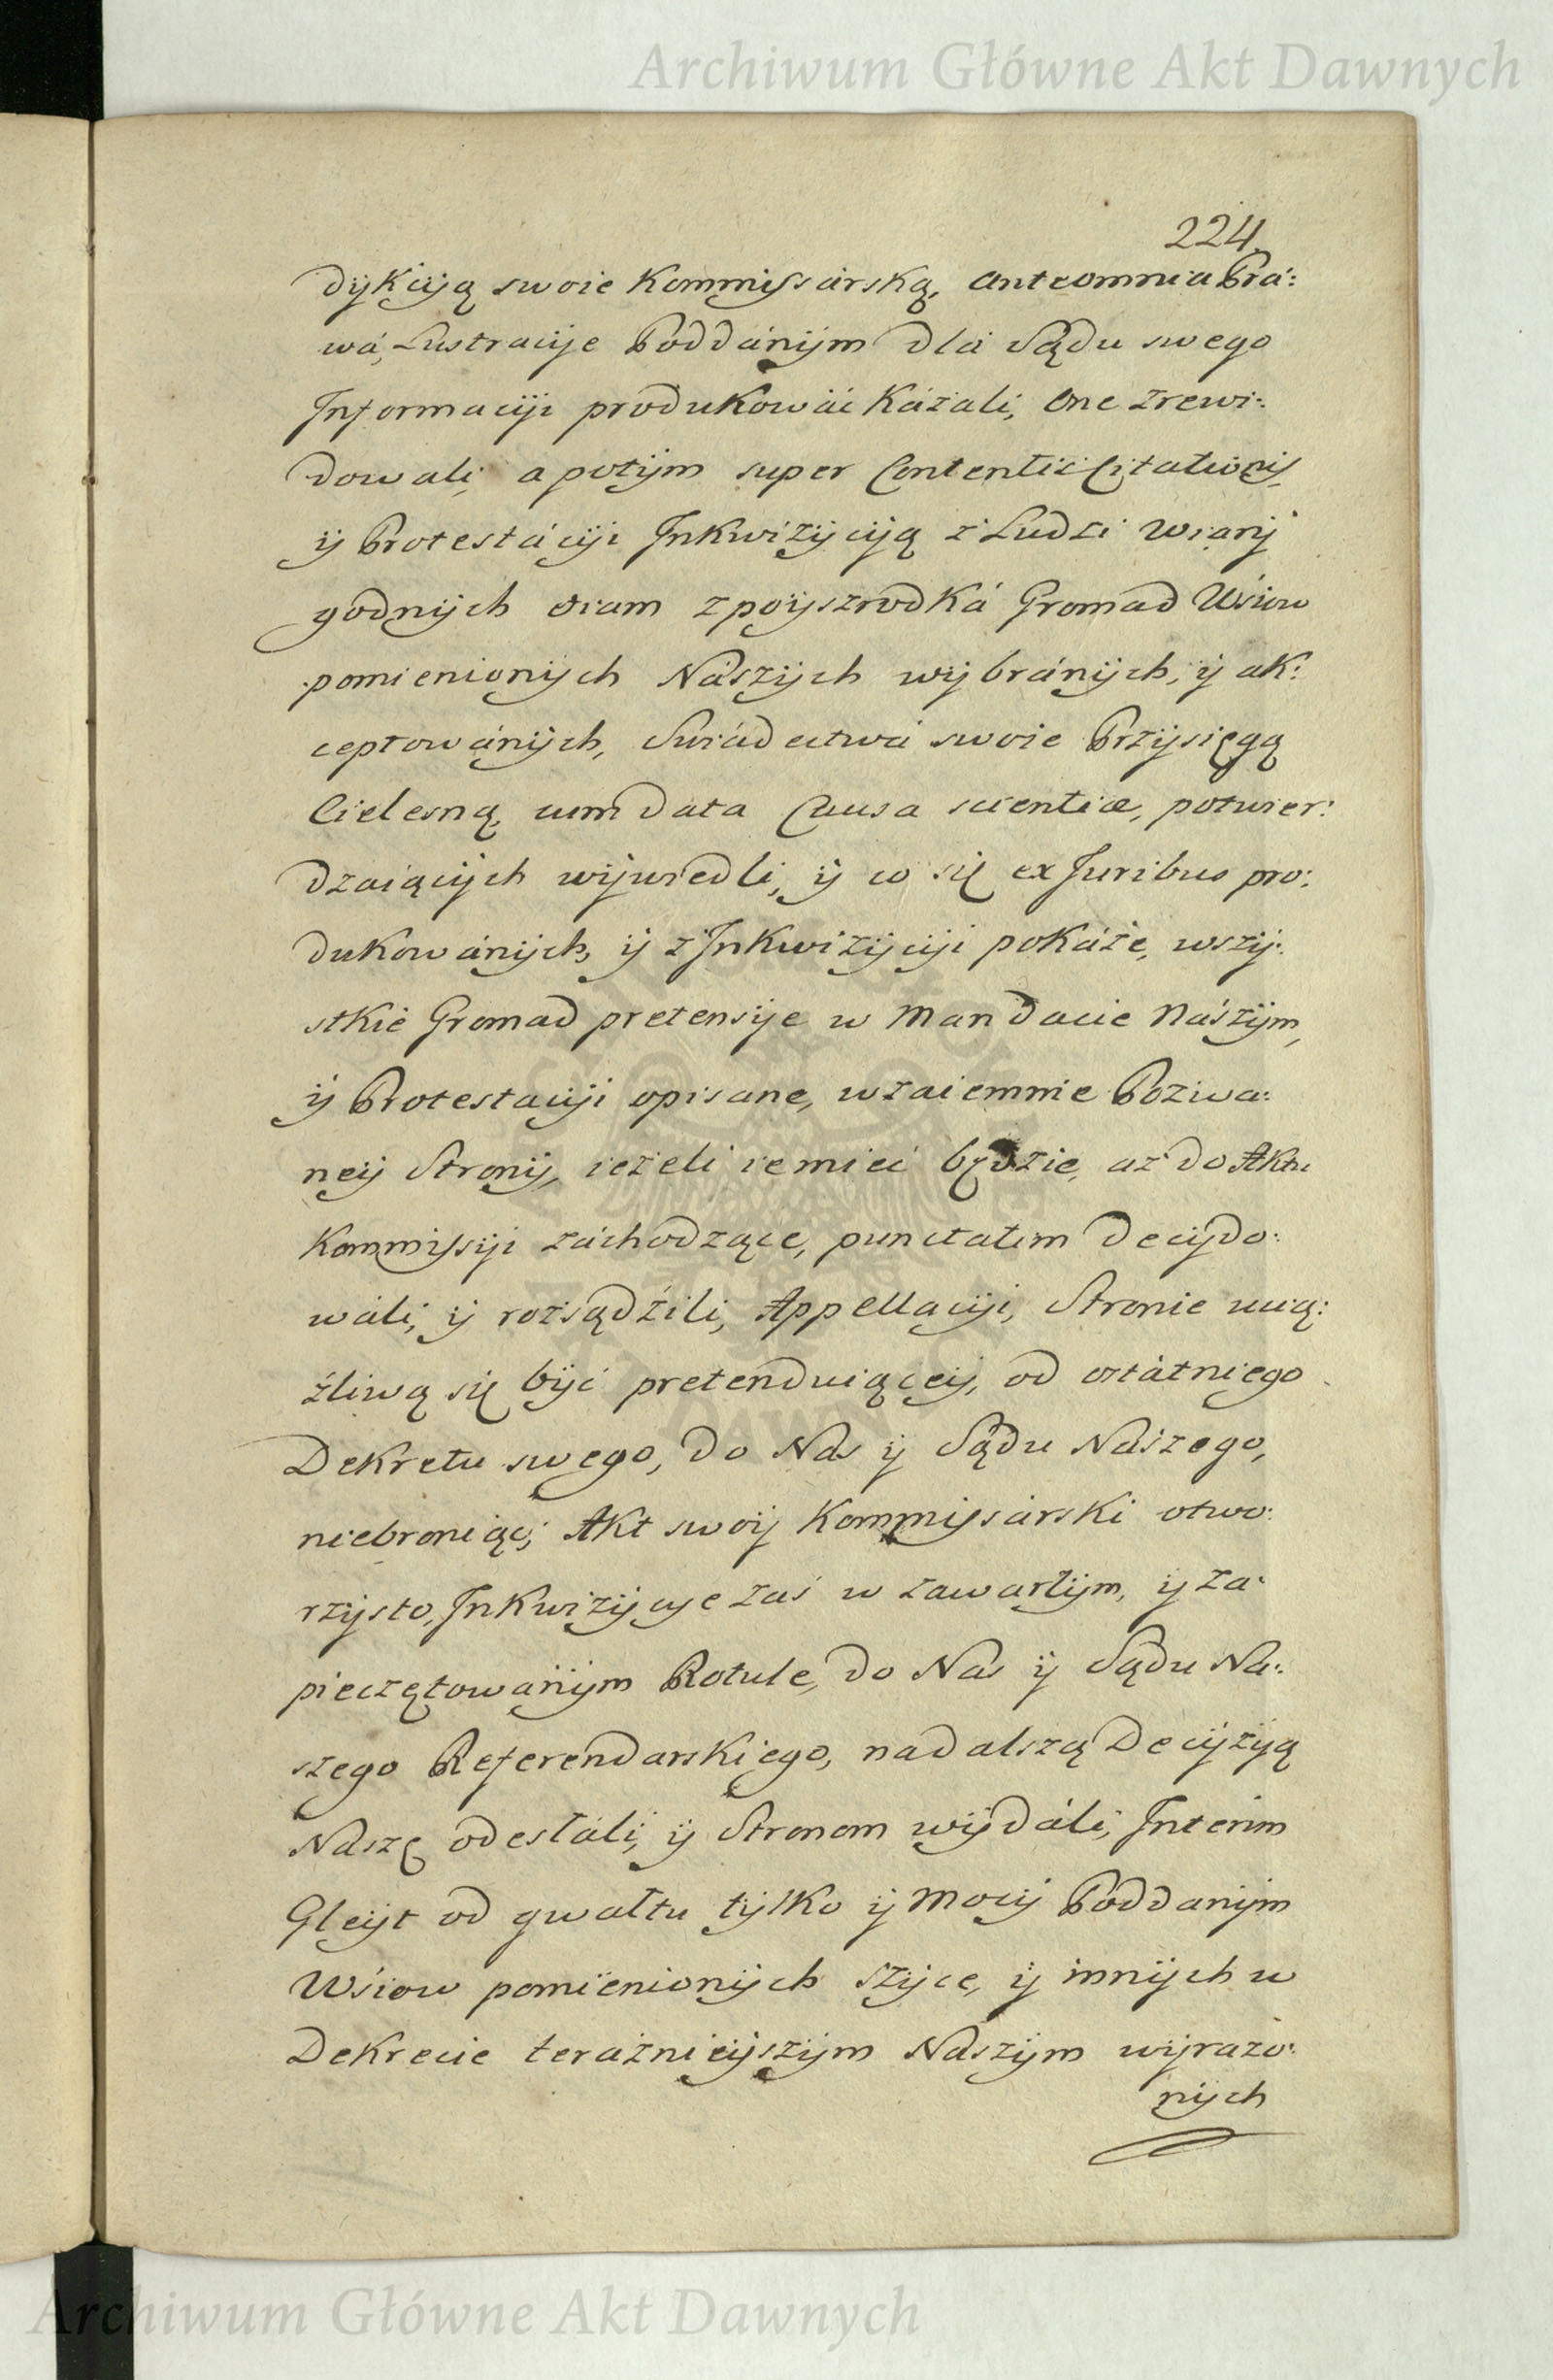 Archiwum Główne Akt Dawnych
224.
dyKcyją swoie Kommissárską, Ante omnia Prá:
wá, Lustracyje Poddánym dlá Sądu swego
Informacyji produkowáć Kázali, One zrewi:
dowali, a potym super Contentis Citationis,
y Protestácyji InKwizycyją z Ludzi Wiary
godnych oram z poyszrodKá Gromad Wsiow
pomienionych Nászych wybránych, y ak:
ceptowánych, Swiádectwá swoie Przysięgą
Cielesną, cum data Causa scientiæ, potwier:
dzaiących wywiedli, y co się ex Juribus pro:
dukowánych, y z InKwizycyji poKáże, wszy:
stKie Gromad pretensyje w Mandacie Nászym,
y Protestacyji opisane, wzaiemnie Pozwa:
ney Strony, ieżeli ie mieć będzie, aż do AKtu
Kommissyji záchodzące, punctatim decydo:
wáli, y rozsądźili, Appellacyji, Stronie uwią:
źliwą się być pretenduiącey, od ostátniego
DeKretu swego, do Nas y Sądu Nászego,
niebroniąc; AKt swoy Kommissárski otwo:
rzysto, InKwizycye zaś w zawartym, y za:
pieczętowánym Rotule, do Nás y Sądu Na:
szego Referendarskiego, na dalszą Decyzyą
Naszę odesłáli, y Stronom wydáli, Interim
Gleyt od gwałtu tylKo y Mocy Poddanym
Wsiow pomienionych Szyce, y innych w
DeKrecie teraźnieyszym Nászym wyrażo:
nych
Archiwum Główne Akt Dawnych